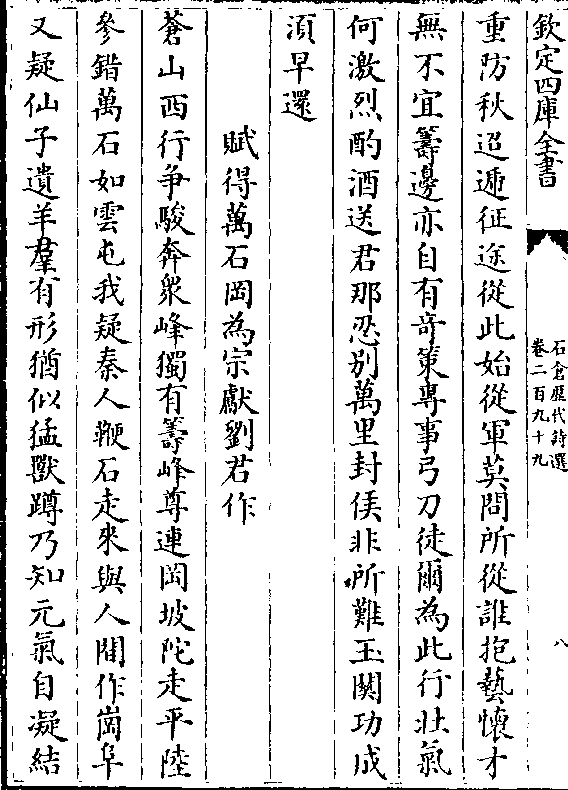 欽定四庫全書
石倉歷代詩選
卷二百九十九
八
重防秋迢遞征途從此始從軍莫問所從誰抱藝懷才
無不宜籌邊亦自有竒策專事弓刀徒爾為此行壯氣
何激烈酌酒送君那忍别萬里封侯非所難玉闗功成
湏早還
賦得萬石岡為宗獻劉君作
蒼山西行争駿奔衆峰獨有籌峰尊連岡坡陀走平陸
參錯萬石如雲屯我疑秦人鞭石走來與人間作崗阜
又疑仙子遺羊羣有形猶似猛獸蹲乃知元氣自凝結